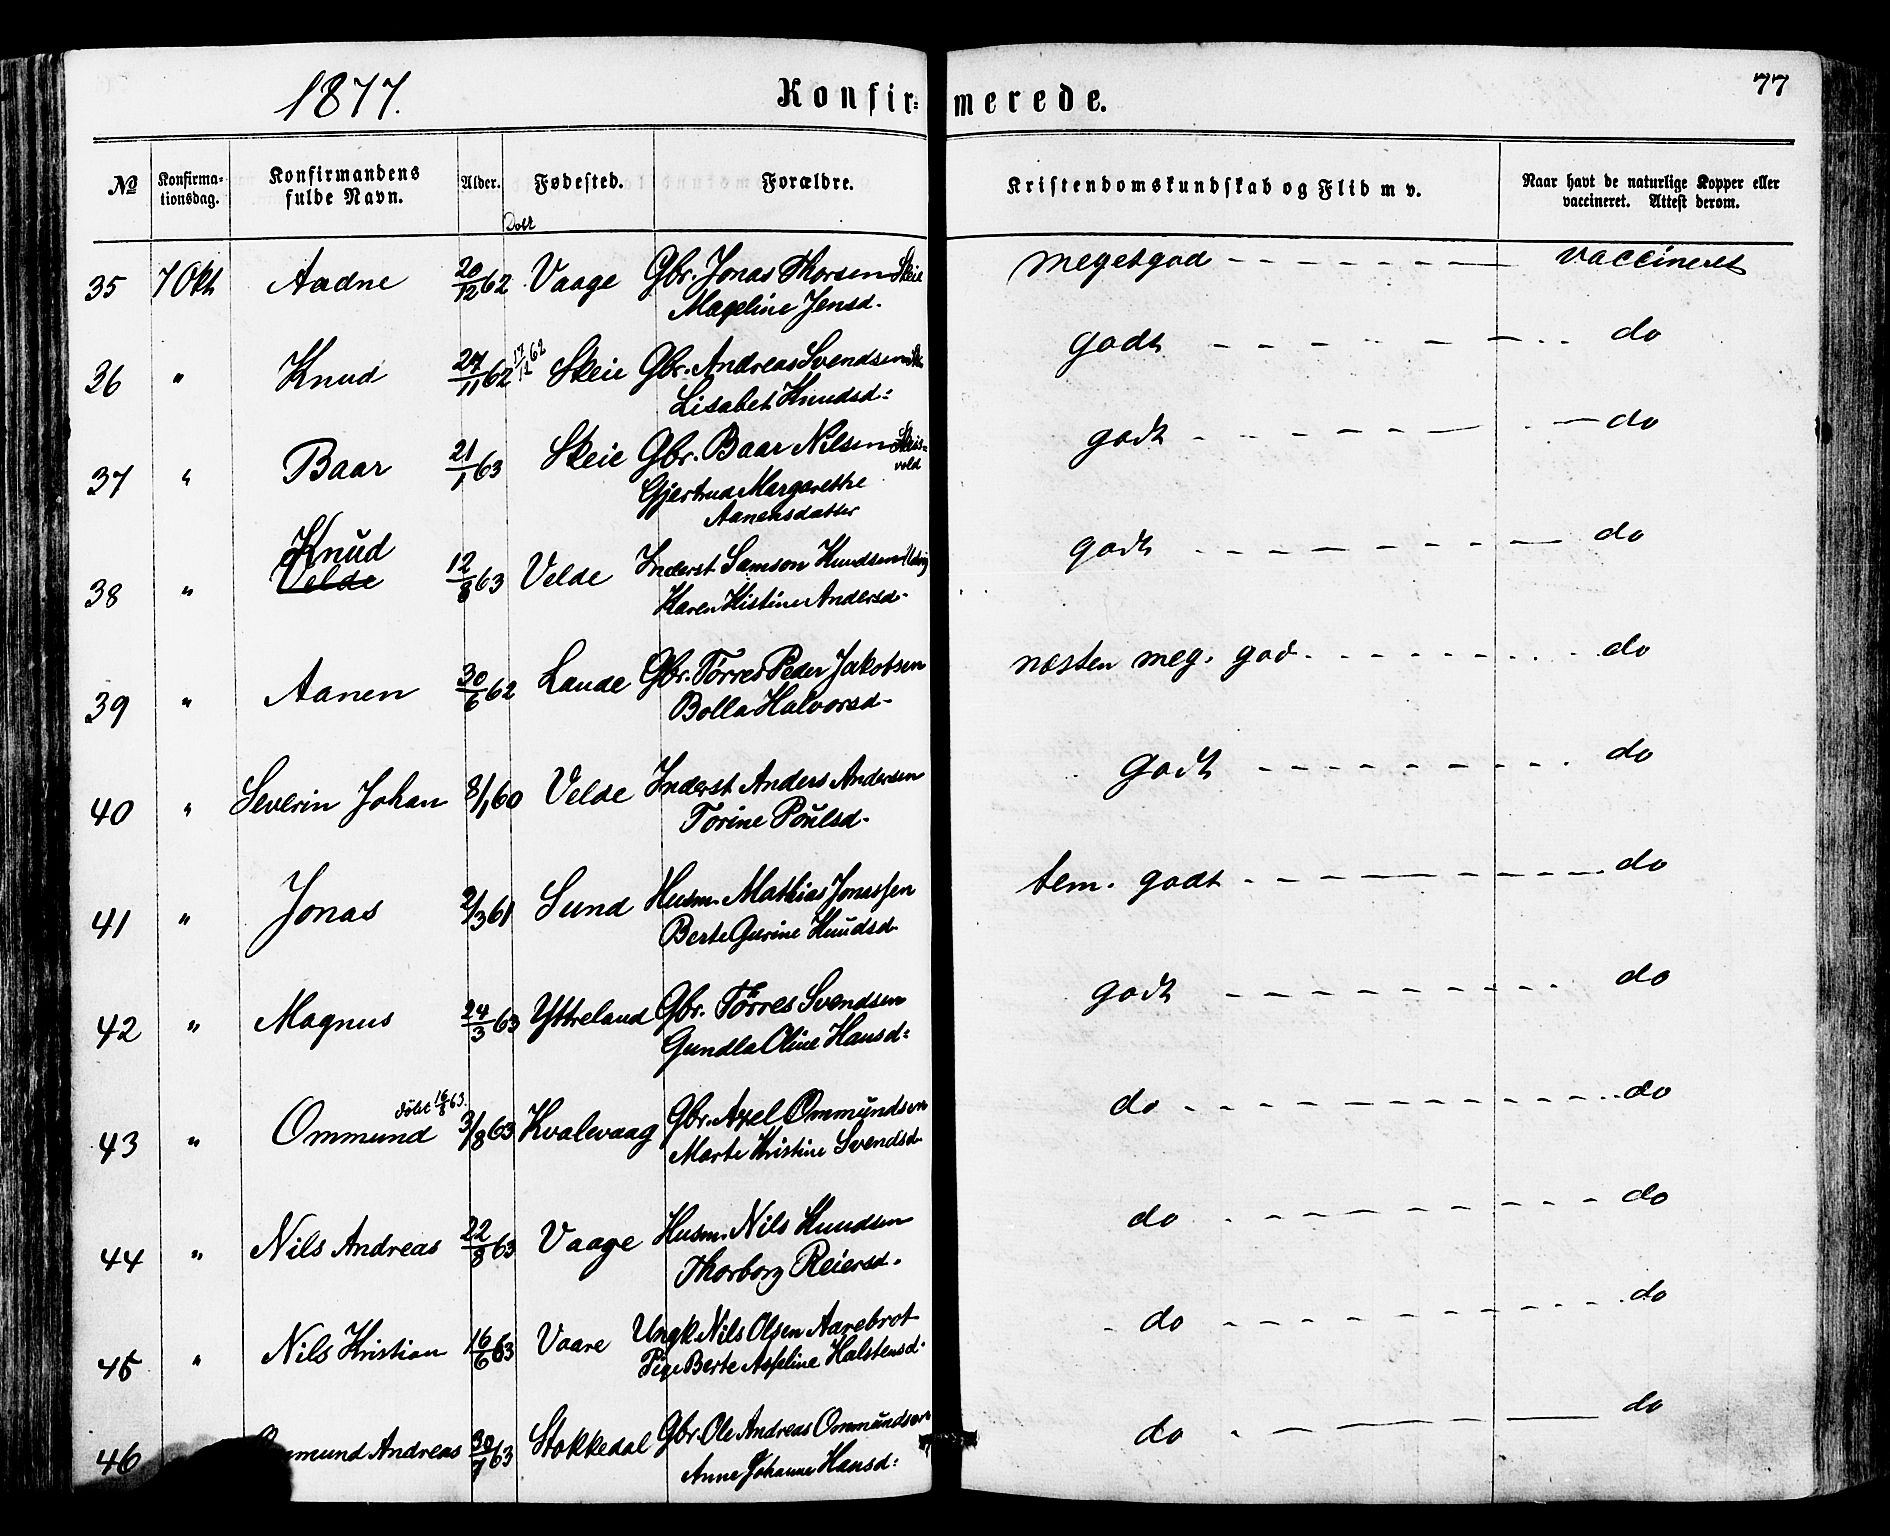 1877.
Konfir=
merede.
77
No
Konfirma-
tionsdag.
Konfirmandens
fulde Navn.
Alder.
Fødested.
Forældre.
Kristendomskundskab og Flid m v.
Naar havt de naturlige Kopper eller
vaccineret. Attest derom.
Døbt
35 7 Okt Aadne 20/12 62 Vaage Gbr. Jonas Thorsen Skeie megetgod vaccineret
Mageline Jensd.
36 " Knud 27/11 62 17/12 62 Skeie Gbr. Andreas Svendsen godt do
Lisabet Knudsd:
37 " Baar 21/1 63 Skeie Gbr. Baar Nilsen godt do
Gjertrud Margarethe
Aanensdatter
Knud
38 " Velde 12/8 63 Velde Inderst Samson Knudsen godt do
Karen Kistine Andersd.
39 " Aanen 30/6 62 Lande Gbr. Tørres Peder Jakobsen næsten meg. god do
Bolla Halvorsd.
40 " Severin Johan 8/1 60 Velde Inderst Anders Andersen godt do
Torine Poulsd.
41 " Jonas 2/3 61 Sund Husm. Mathias Jonassen tem. godt do
Berte Gurine Knudsd.
42 " Magnus 24/3 63 Yttreland Gbr. Tørres Svendsen godt do
Gundla Oline Hansd:
døbt 16/8 63.
43 " Ommund 3/8 63 Kvalevaag Gbr. Axel Ommundsen do do
Marte Kristine Svendsd.
44 " Nils Andreas 22/8 63 Vaage Husm. Nils Knudsen do do
Thorborg Reiersd.
45 " Nils Kristian 16/6 63 Vaare Ungk Nils Olsen Aarebrot do do
Pige Berte Asseline Halstensd.
46 mund Andreas 30/7 63 Stokkedal Gbr. Ole Andreas Ommundsen do do
Anne Johanne Hansd: